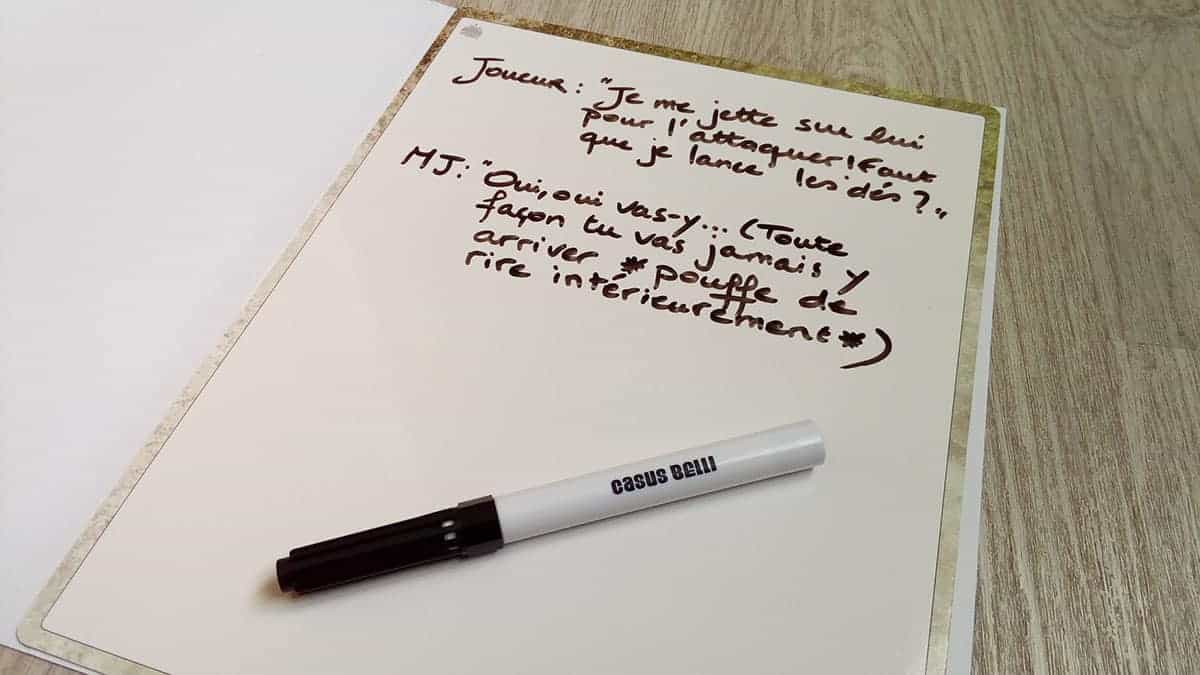 Joueur : "Je me jette sur lui
pour l'attaquer ! Faut
que je lance les dés ?"
MJ : "Oui, oui vas-y... (Toute
façon tu vas jamais y
arriver * pouffe de
rire intérieurement *)
CASUS BELLI